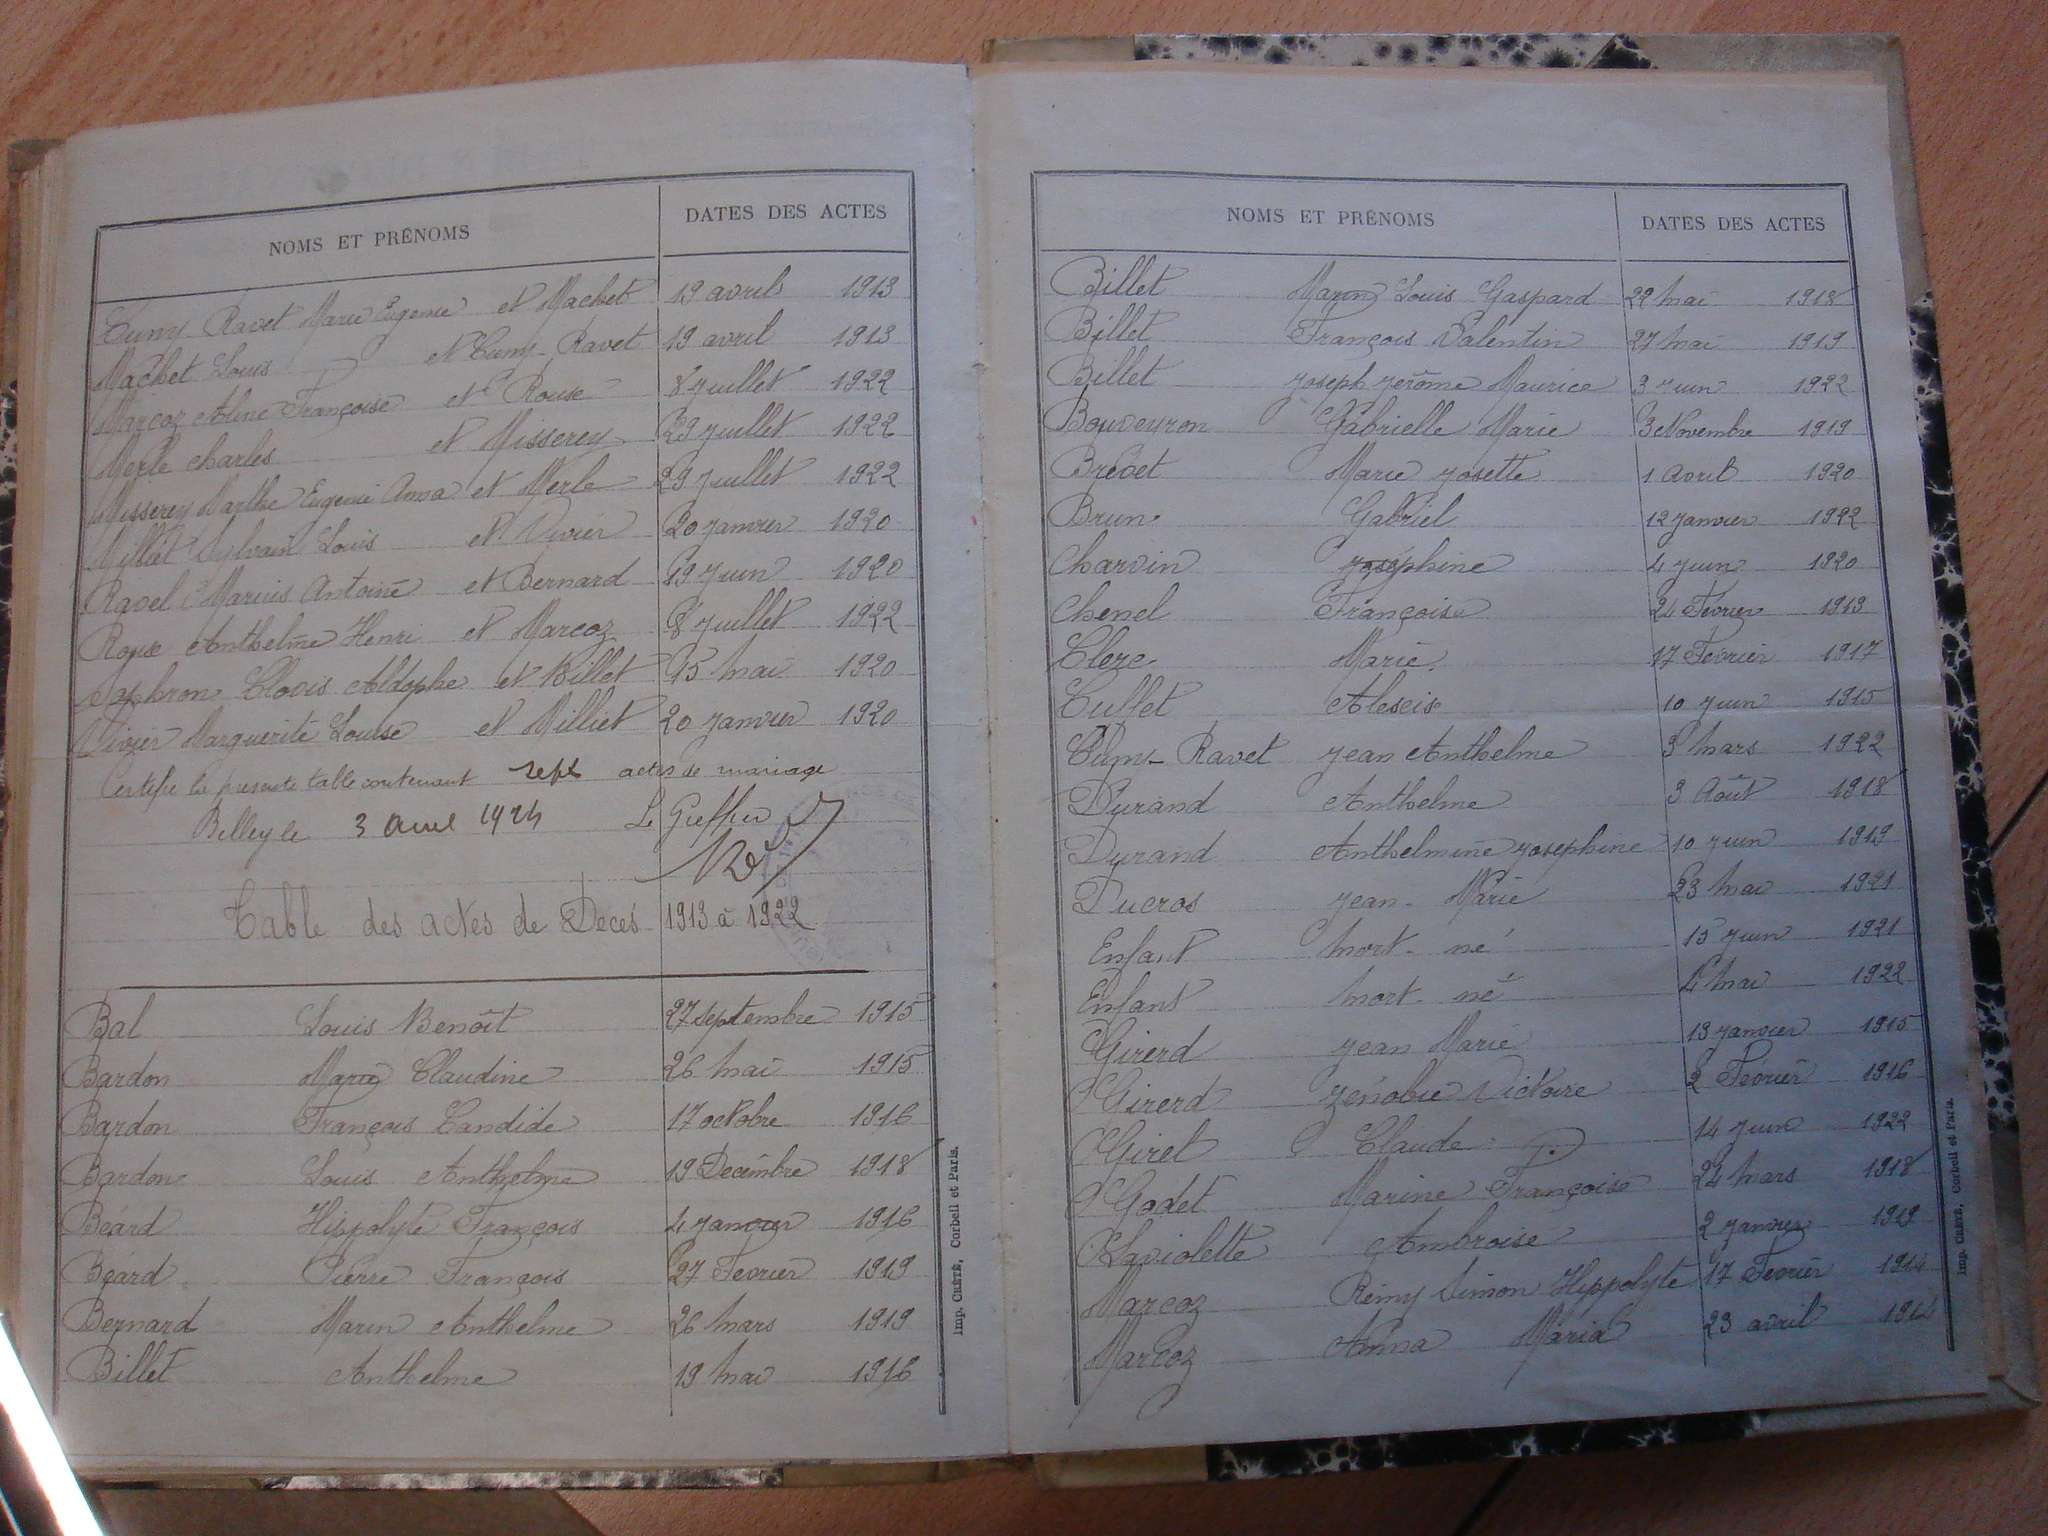 NOMS ET PRÉNOMS DATES DES ACTES
Cumy Ravet Marie Eugenie et Machet 19 avril 1913
Machet Louis et Cumy-Ravet 19 avril 1913
Marcoz Aline Françoise et Roux 8 juillet 1922
Merle charles et Misserey 29 juillet 1922
Misserey Marthe Eugenie Anna et Merle 29 juillet 1922
Millat Sylvain Louis et Vivier 20 janvier 1920
Ravel Marius Antoine et Bernard 19 juin 1920
Roux Anthelme Henri et Marcoz 8 juillet 1922
Saphron Clovis Aldophe et Billet 15 mai 1920
Vivier Marguerite Louise et Milliet 20 janvier 1920
Certifie la presente table contenant sept actes de mariage
Belley le 3 avril 1924 Le Greffier
Table des actes de Décés 1913 à 1922
Bal Louis Benoit 27 septembre 1915
Bardon Marie Claudine 26 mai 1915
Bardon François Candide 17 octobre 1916
Bardon Louis Anthelme 19 Decembre 1918
Béard Hippolyte François 4 janvier 1916
Béard Pierre François 27 Fevrier 1919
Bernard Marin Anthelme 26 mars 1919
Billet Anthelme 19 mai 1916
Imp. CRÉTÉ, Corbeil et Paris.
NOMS ET PRÉNOMS DATES DES ACTES
Billet Marin Louis Gaspard 22 mai 1918
Billet François Valentin 27 mai 1919
Billet Joseph Jerôme Maurice 3 Juin 1922
Bouveyron Gabrielle Marie 3 Novembre 1919
Brevet Marie Josette 1 Avril 1920
Brun Gabriel 12 Janvier 1922
Charvin Joséphine 4 Juin 1920
Chenel Françoise 24 Fevrier 1919
Clerc Marie 17 Fevrier 1917
Cullet Alexis 10 Juin 1915
Cumy-Ravet Jean Anthelme 9 Mars 1922
Durand Anthelme 9 Août 1918
Durand Anthelmine Josephine 10 juin 1919
Ducros Jean-Marie 23 mai 1921
Enfant mort-né 15 juin 1921
Enfant mort-né 4 mai 1922
Girerd Jean Marie 13 janvier 1915
Girerd Zénobie Victoire 2 Fevrier 1916
Giret Claude 14 juin 1922
Godet Marine Françoise 24 mars 1918
Laviolette Ambroise 2 janvier 1919
Marcoz Rémy Simon Hippolyte 17 Fevrier 1914
Marcoz Anna Maria 23 avril 1914
Imp. CRÉTÉ, Corbeil et Paris.